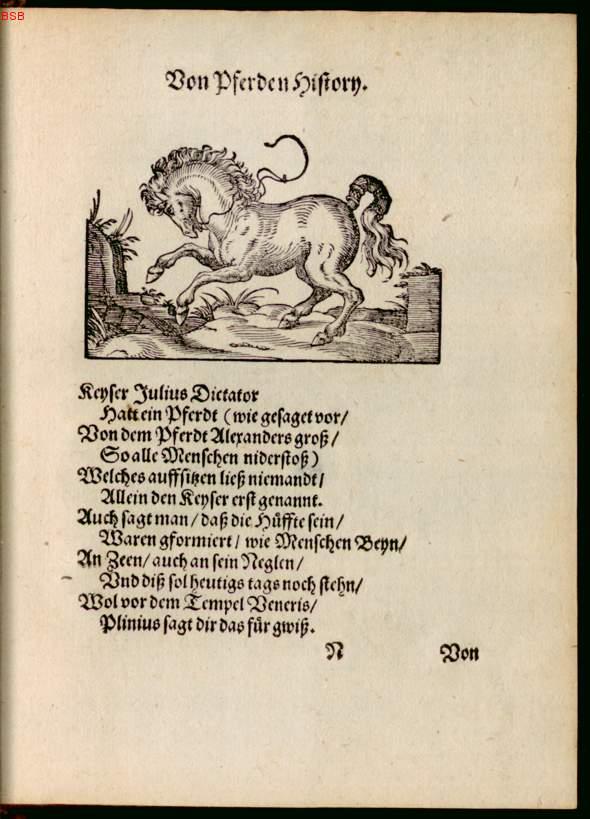 BSB
Von Pferden History.
Keyser Julius Dictator
Hatt ein Pferdt (wie gesaget vor/
Von dem Pferdt Alexanders groß/
So alle Menschen niderstoß)
Welches auffsitzen ließ niemandt/
Allein den Keyser erst genannt.
Auch sagt man/ daß die Hüffte sein/
Waren gformiert/ wie Menschen Beyn/
An Zeen/ auch an sein Neglen/
Vnd diß sol heutigs tags noch stehn/
Wol vor dem Tempel Veneris/
Plinius sagt dir das für gwiß.
N
Von